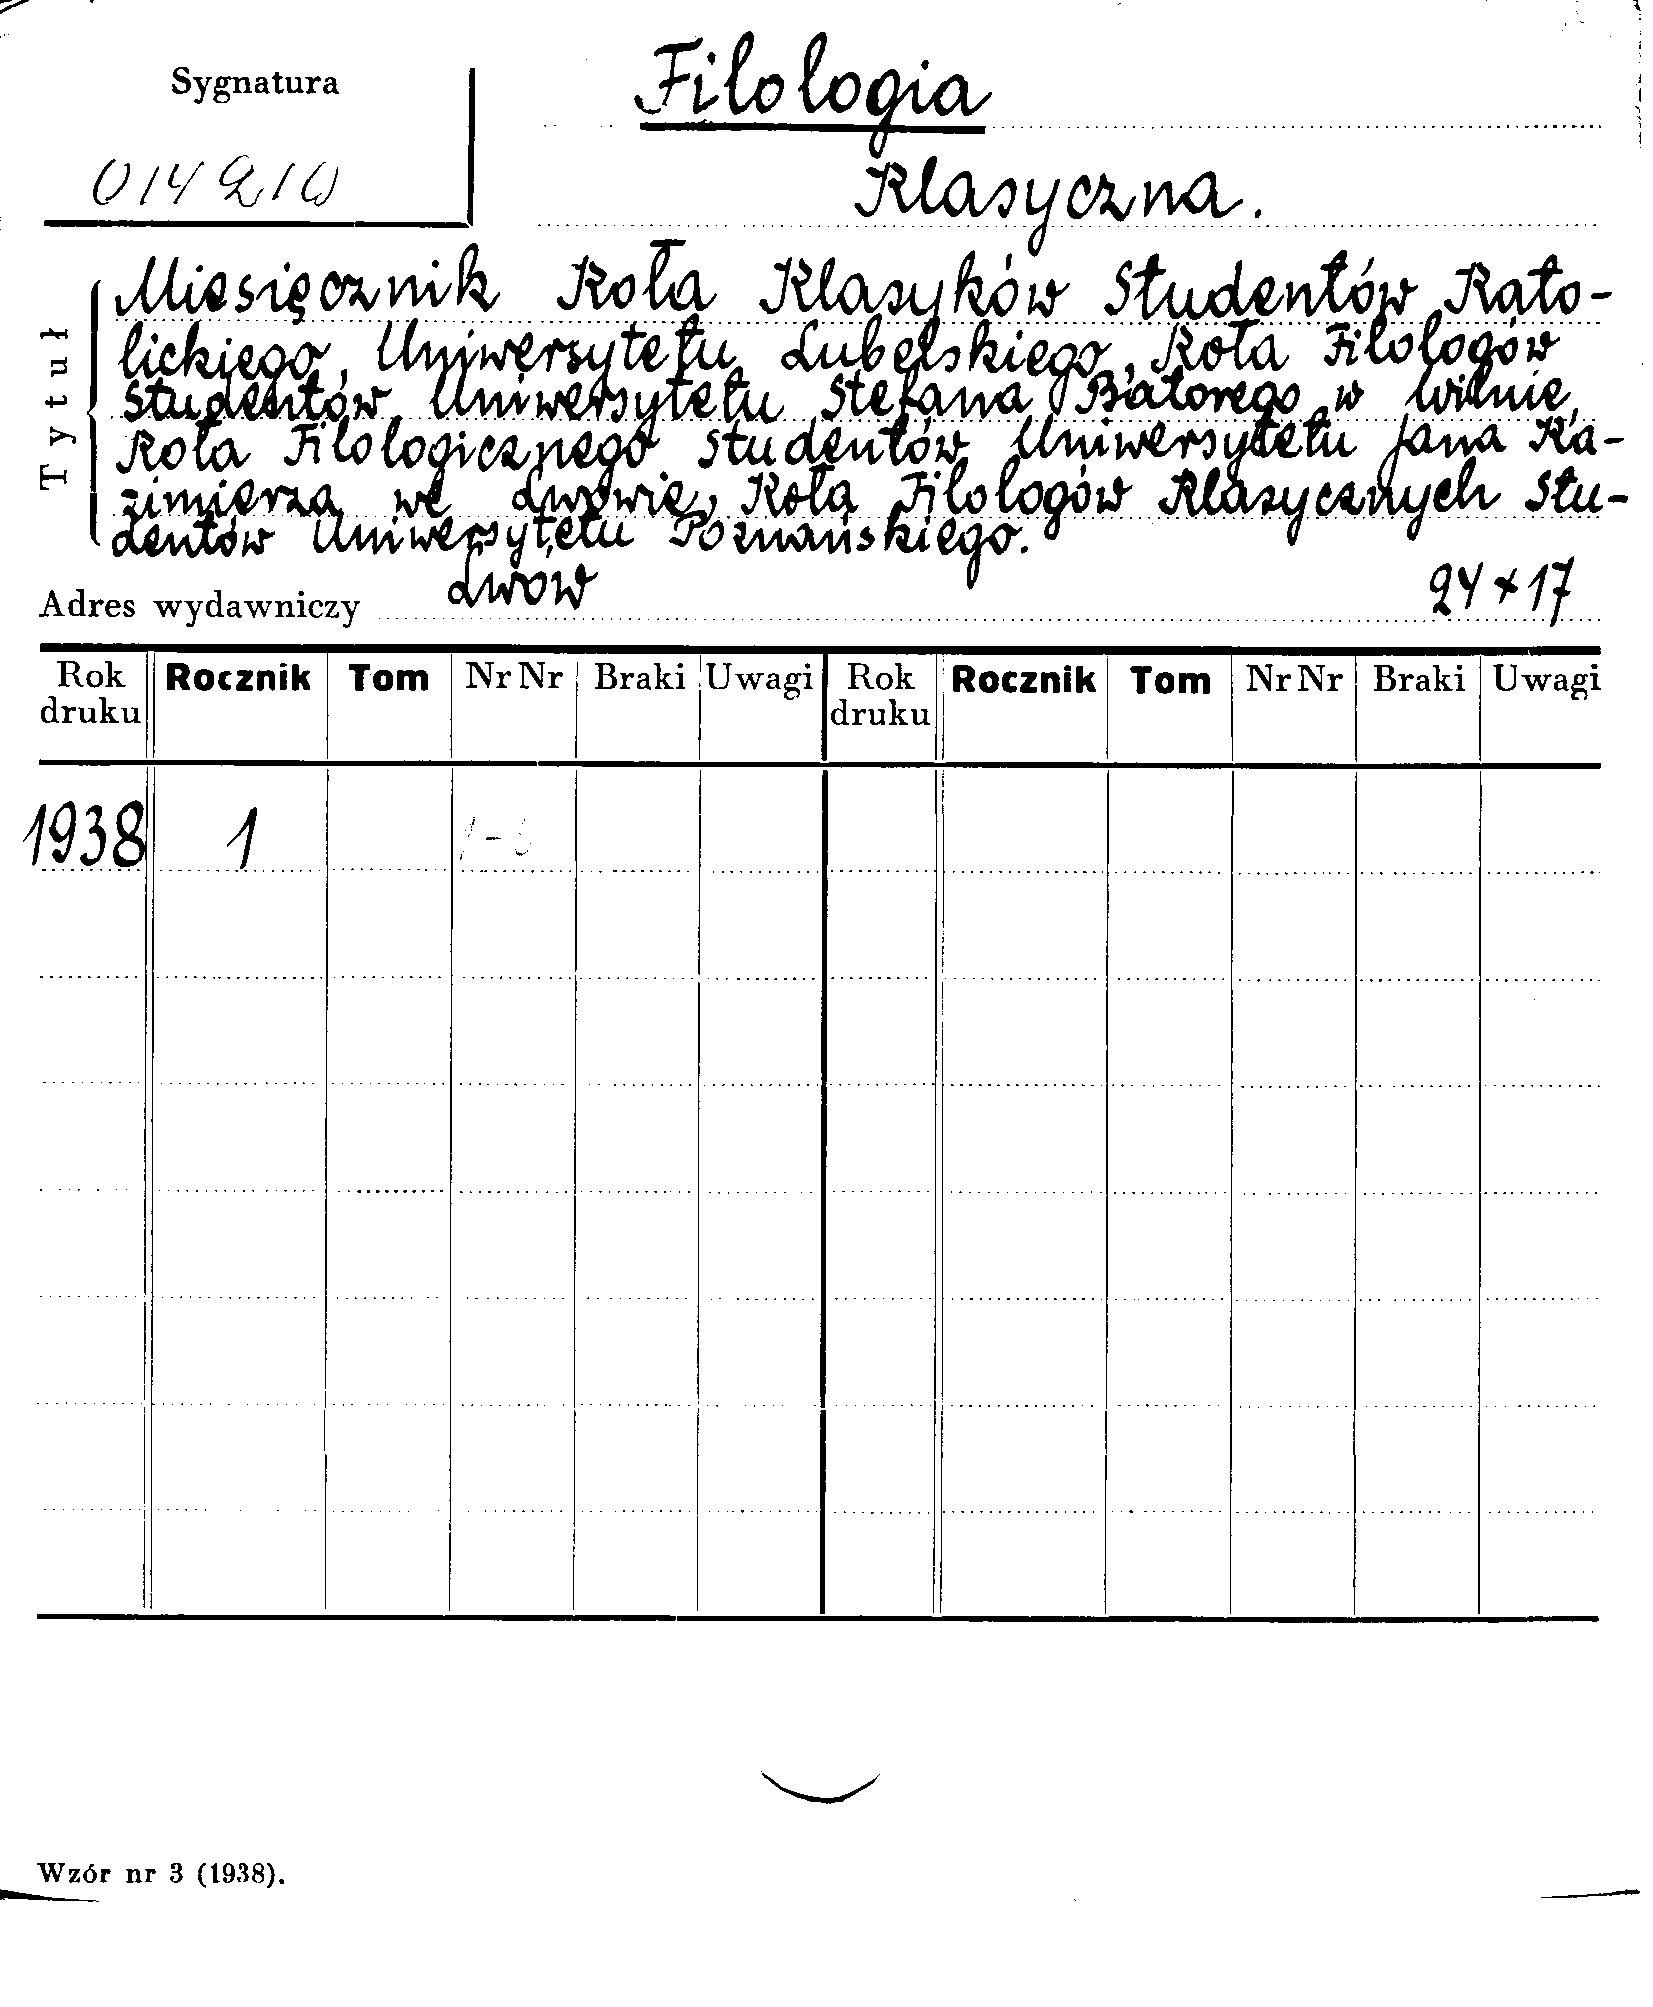 Sygnatura
014210
Filologia
Klasyczna.
Tytuł
Miesięcznik Koła Klasyków Studentów Kato-
lickiego Uniwersytetu Lubelskiego, Koła Filologów
Studentów Uniwersytetu Stefana Batorego w Wilnie,
Koła Filologicznego Studentów Uniwersytetu Jana Ka-
zimierza we Lwowie, Koła Filologów Klasycznych Stu-
dentów Uniwersytetu Poznańskiego.
Adres wydawniczy Lwów 24 x 17
Rok druku Rocznik Tom Nr Nr Braki Uwagi Rok druku Rocznik Tom Nr Nr Braki Uwagi
1938 1 1-
Wzór nr 3 (1938).